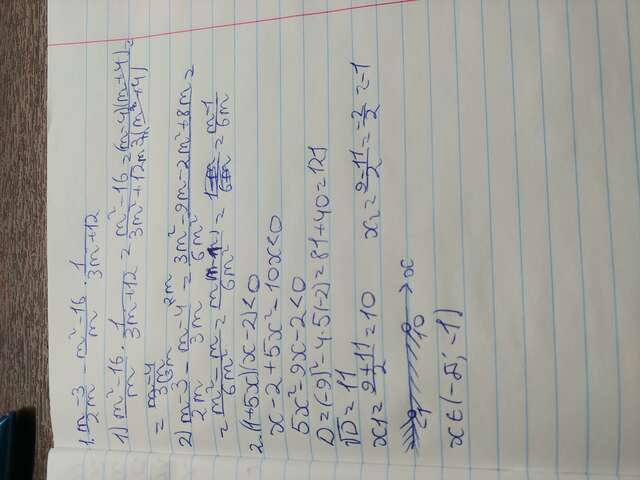 1. (m-3)/2m - (m²-16)/m · 1/(3m+12)
1) (m²-16)/m · 1/(3m+12) = (m²-16)/(3m²+12m) = ((m-4)(m+4))/(3(m²+4)) =
= (m-4)/3m
2) (m-3)/2m - (m-4)/3m = (3m²-9m-2m²+8m)/6m² =
= (m²-m)/6m² = = (m-1)/6m
2. (1+5x)(x-2)<0
x-2+5x²-10x<0
5x²-9x-2<0
D=(-9)²-4·5(-2)=81+40=121
√D=11
x1=(9+11)/2=10 x2=(9-11)/2=-2/2=-1
-1 10 x
x∈(-∞;-1)